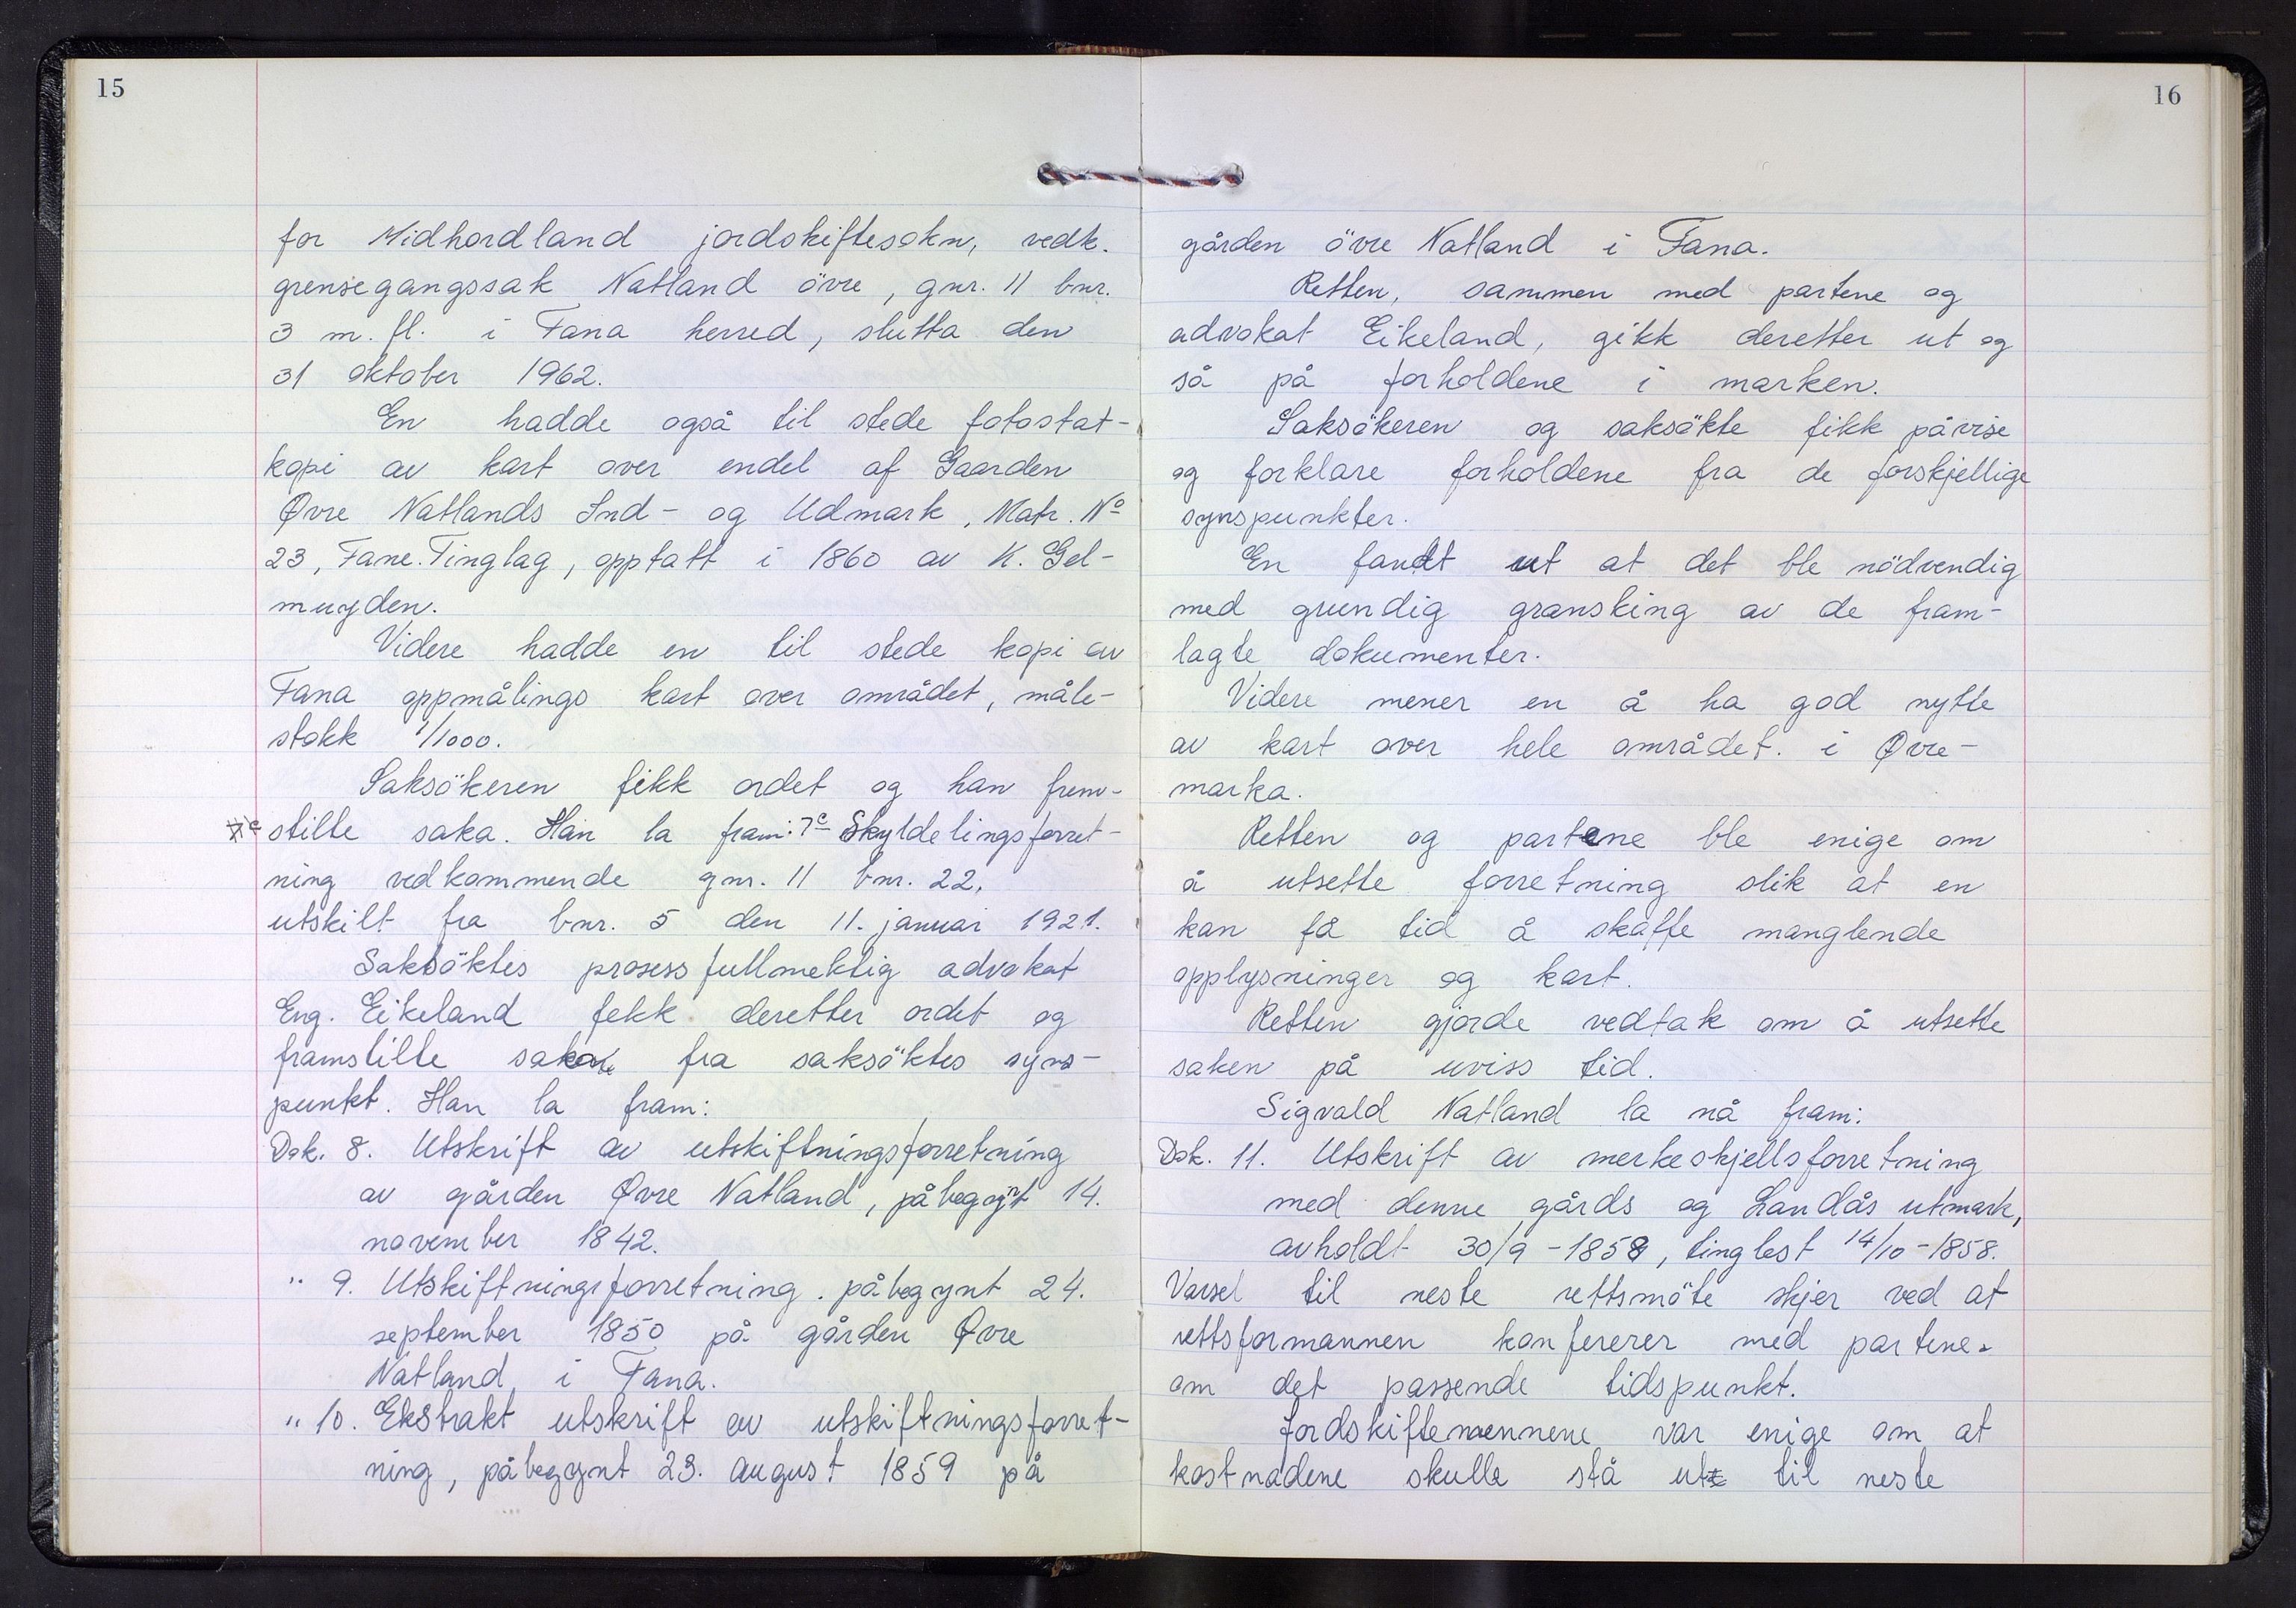 15
for Midhordland jordskiftesokn, vedk.
grensegangssak Natland övre, gnr. 11 bnr.
3 m. fl. i Fana herred, slutta den
31 oktober 1962.
En hadde også til stede fotostat-
kopi av kart over endel af Gaarden
Øvre Natlands Ind- og Udmark, Matr. No
23, Fane. Tinglag, opptatt i 1860 av K. Gel-
muyden.
Videre hadde en til stede kopi av
Fana oppmålings kart over området, måle-
stokk 1/1000.
Saksökeren fikk ordet og han frem-
stilte saka. Han la fram: 7c Skyldelingsforret-
ning vedkommende gnr. 11 bnr. 22,
utskilt fra bnr. 5 den 11. januar 1921.
Saksöktes prosessfullmektig advokat
Eng. Eikeland fekk deretter ordet og
framstilte saka fra saksöktes syns-
punkt. Han la fram:
Dok. 8. Utskrift av utskiftningsforretning
av gården Øvre Natland, påbegynt 14.
november 1842.
" 9. Utskiftningsforretning. påbegynt 24.
september 1850 på gården Øvre
Natland i Fana.
" 10. Ekstrakt utskrift av utskiftningsforret-
ning, påbegynt 23. august 1859 på
16
gården övre Natland i Fana.
Retten, sammen med partene og
advokat Eikeland, gikk deretter ut og
så på forholdene i marken.
Saksökeren og saksökte fikk påvise
og forklare forholdene fra de forskjellige
synspunkter.
En fandt ut at det ble nödvendig
med grundig gransking av de fram-
lagte dokumenter.
Videre mener en å ha god nytte
av kart over hele området. i Øvre-
marka.
Retten og partene ble enige om
å utsette forretning slik at en
kan få tid å skaffe manglende
opplysninger og kart.
Retten gjorde vedtak om å utsette
saken på uviss tid.
Sigvald Natland la nå fram:
Dok. 11. Utskrift av merkeskjellsforretning
med denne gårds og Landås utmark,
avholdt 30/9 - 1858, tinglest 14/10 - 1858.
Varsel til neste rettsmöte skjer ved at
rettsformannen konfererer med partene.
om det passende tidspunkt.
Jordskiftemennene var enige om at
kostnadene skulle stå ut til neste